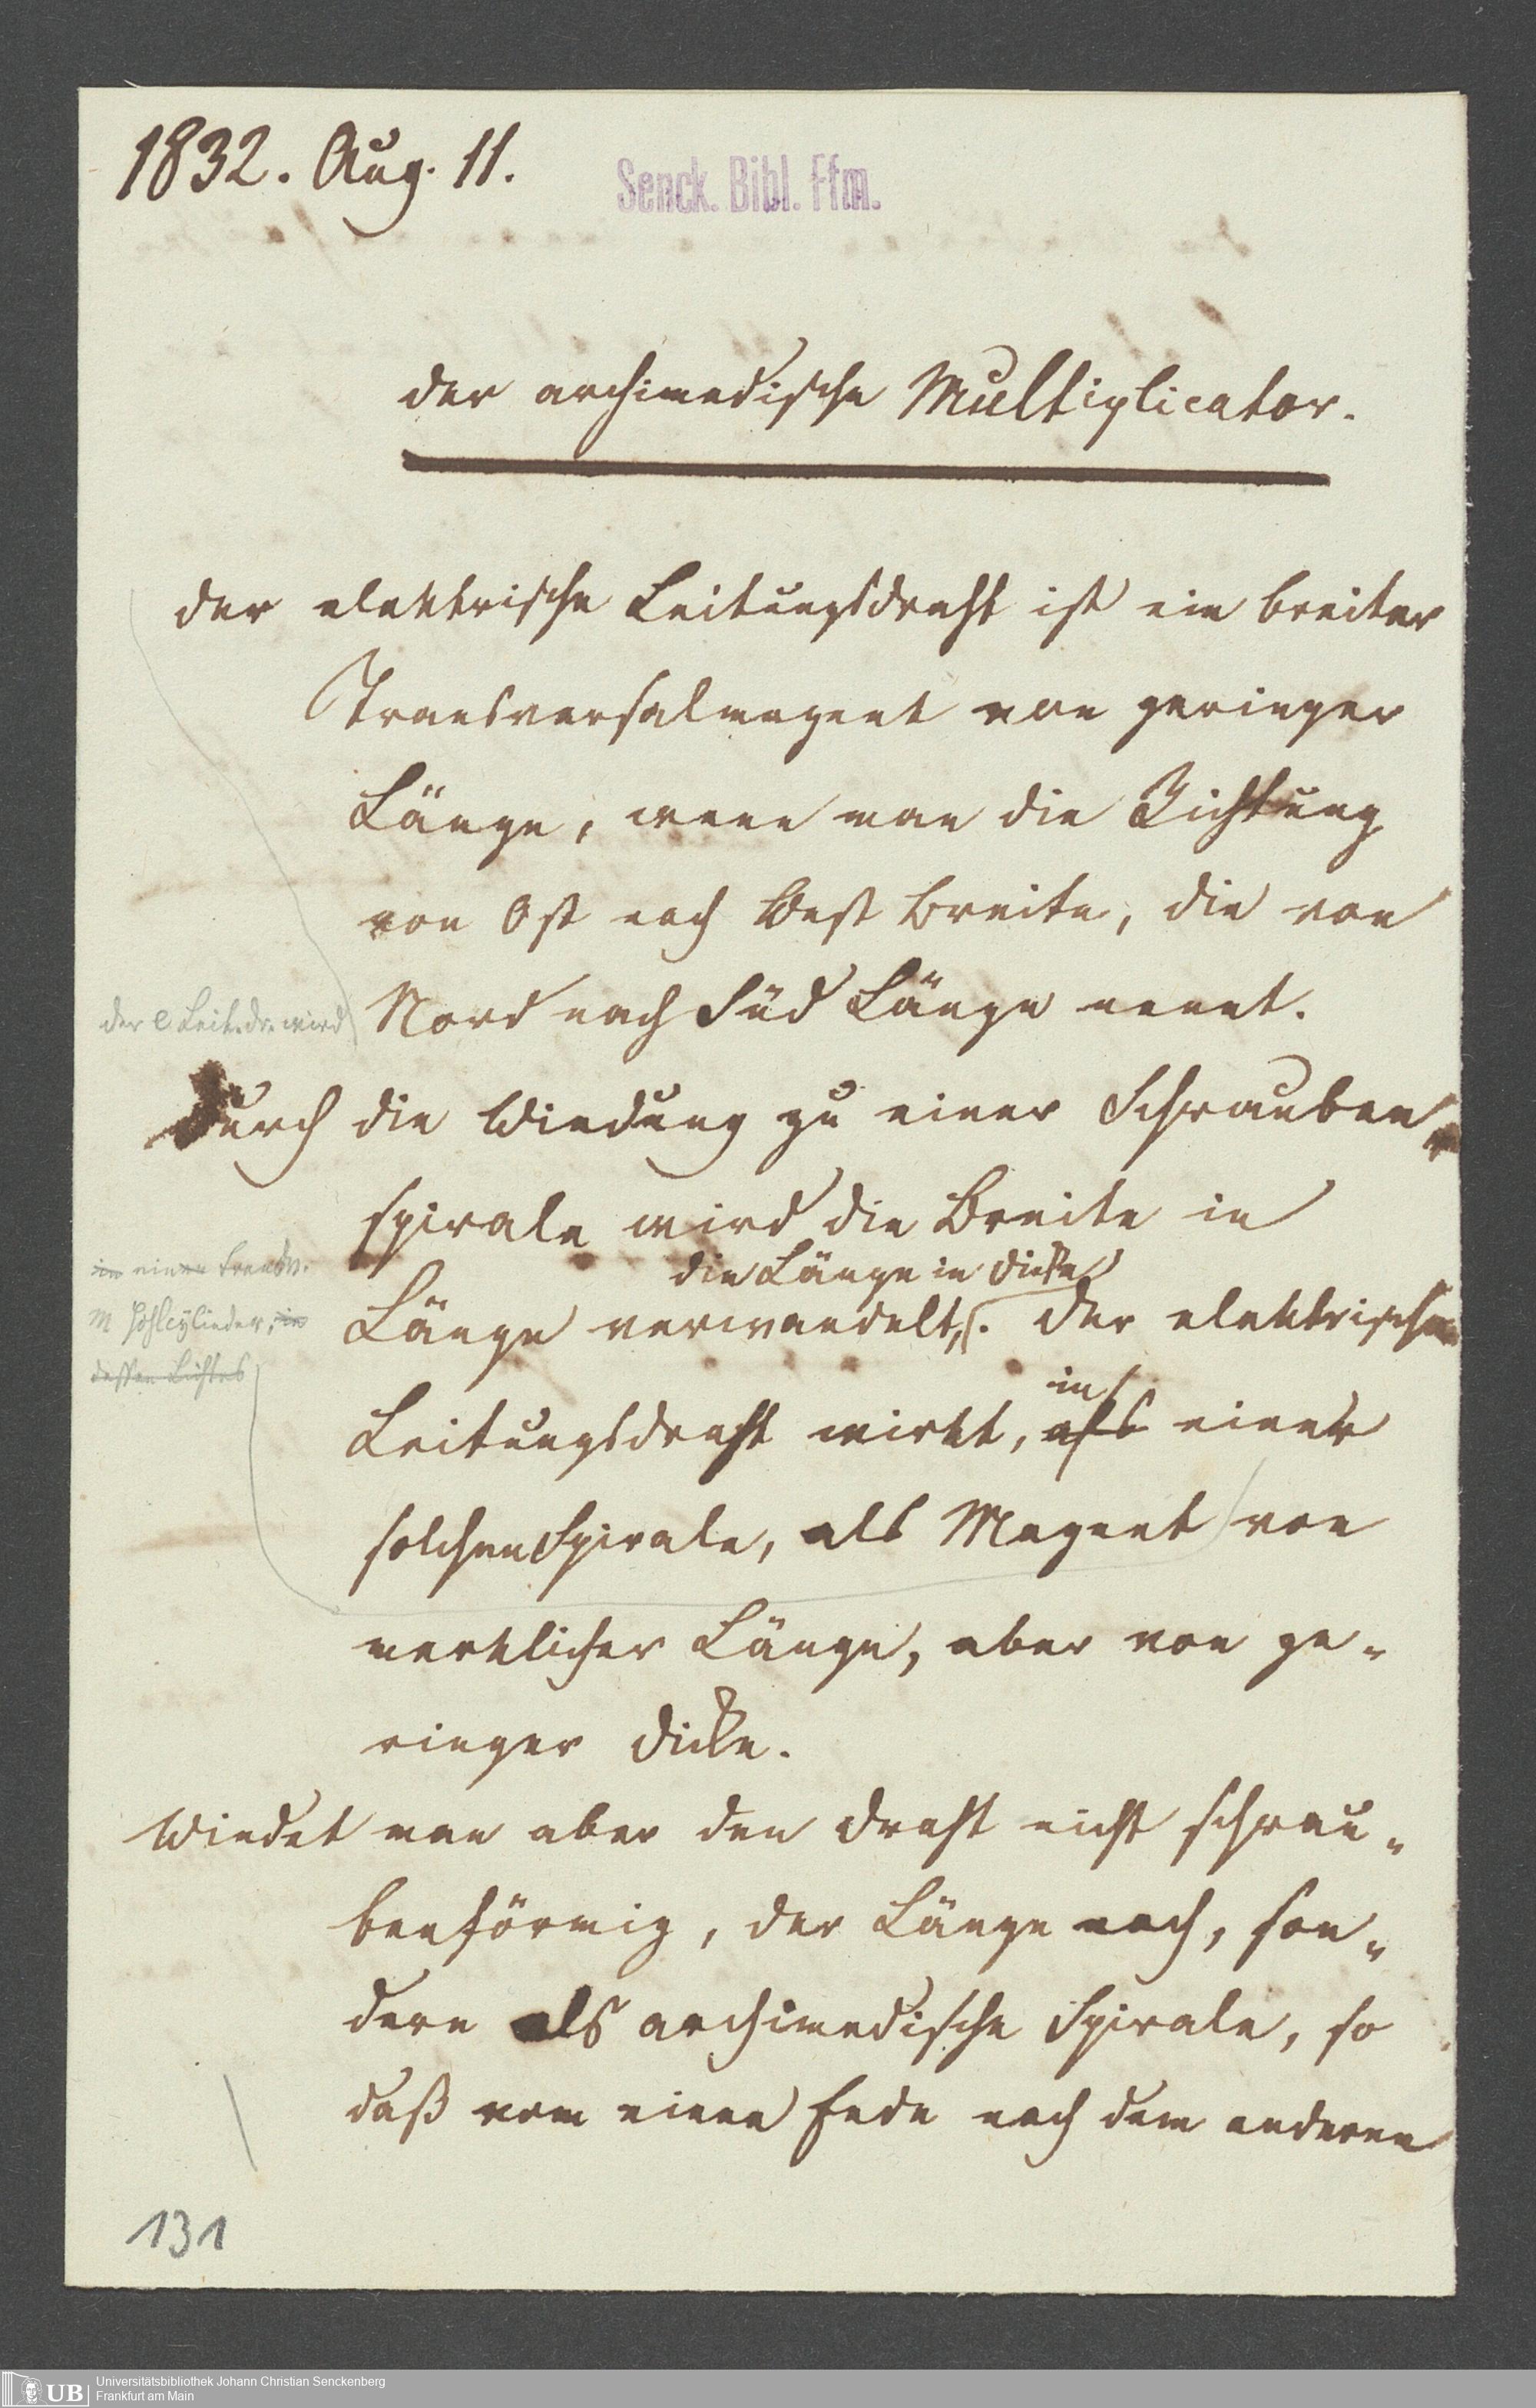 1832. Aug. 11.
Senck. Bibl. Ffm.
der archimedische Multiplicator.
der elektrische Leitungsdraht ist ein breiter
Transversalmagnet von geringer
Länge, wenn man die Richtung
von Ost nach West Breite, die von
Nord nach Süd Länge nennt.
der e Leit.dr. wird
Durch die Windung zu einer Schrauben-
spirale wird die Breite in
die Länge in Dicke
Länge verwandelt,. der elektrische
in einen transv.
M Hohlcylinder, in
dessen Lichtes
in
Leitungsdraht wirkt, als einer
solchen Spirale, als Magnet von
merklicher Länge, aber von ge-
ringer Dicke.
Windet man aber den Draht nicht schrau-
benförmig, der Länge nach, son-
dern als archimedische Spirale, so
daß vom einen Ende nach dem anderen
131
UB
Universitätsbibliothek Johann Christian Senckenberg
Frankfurt am Main